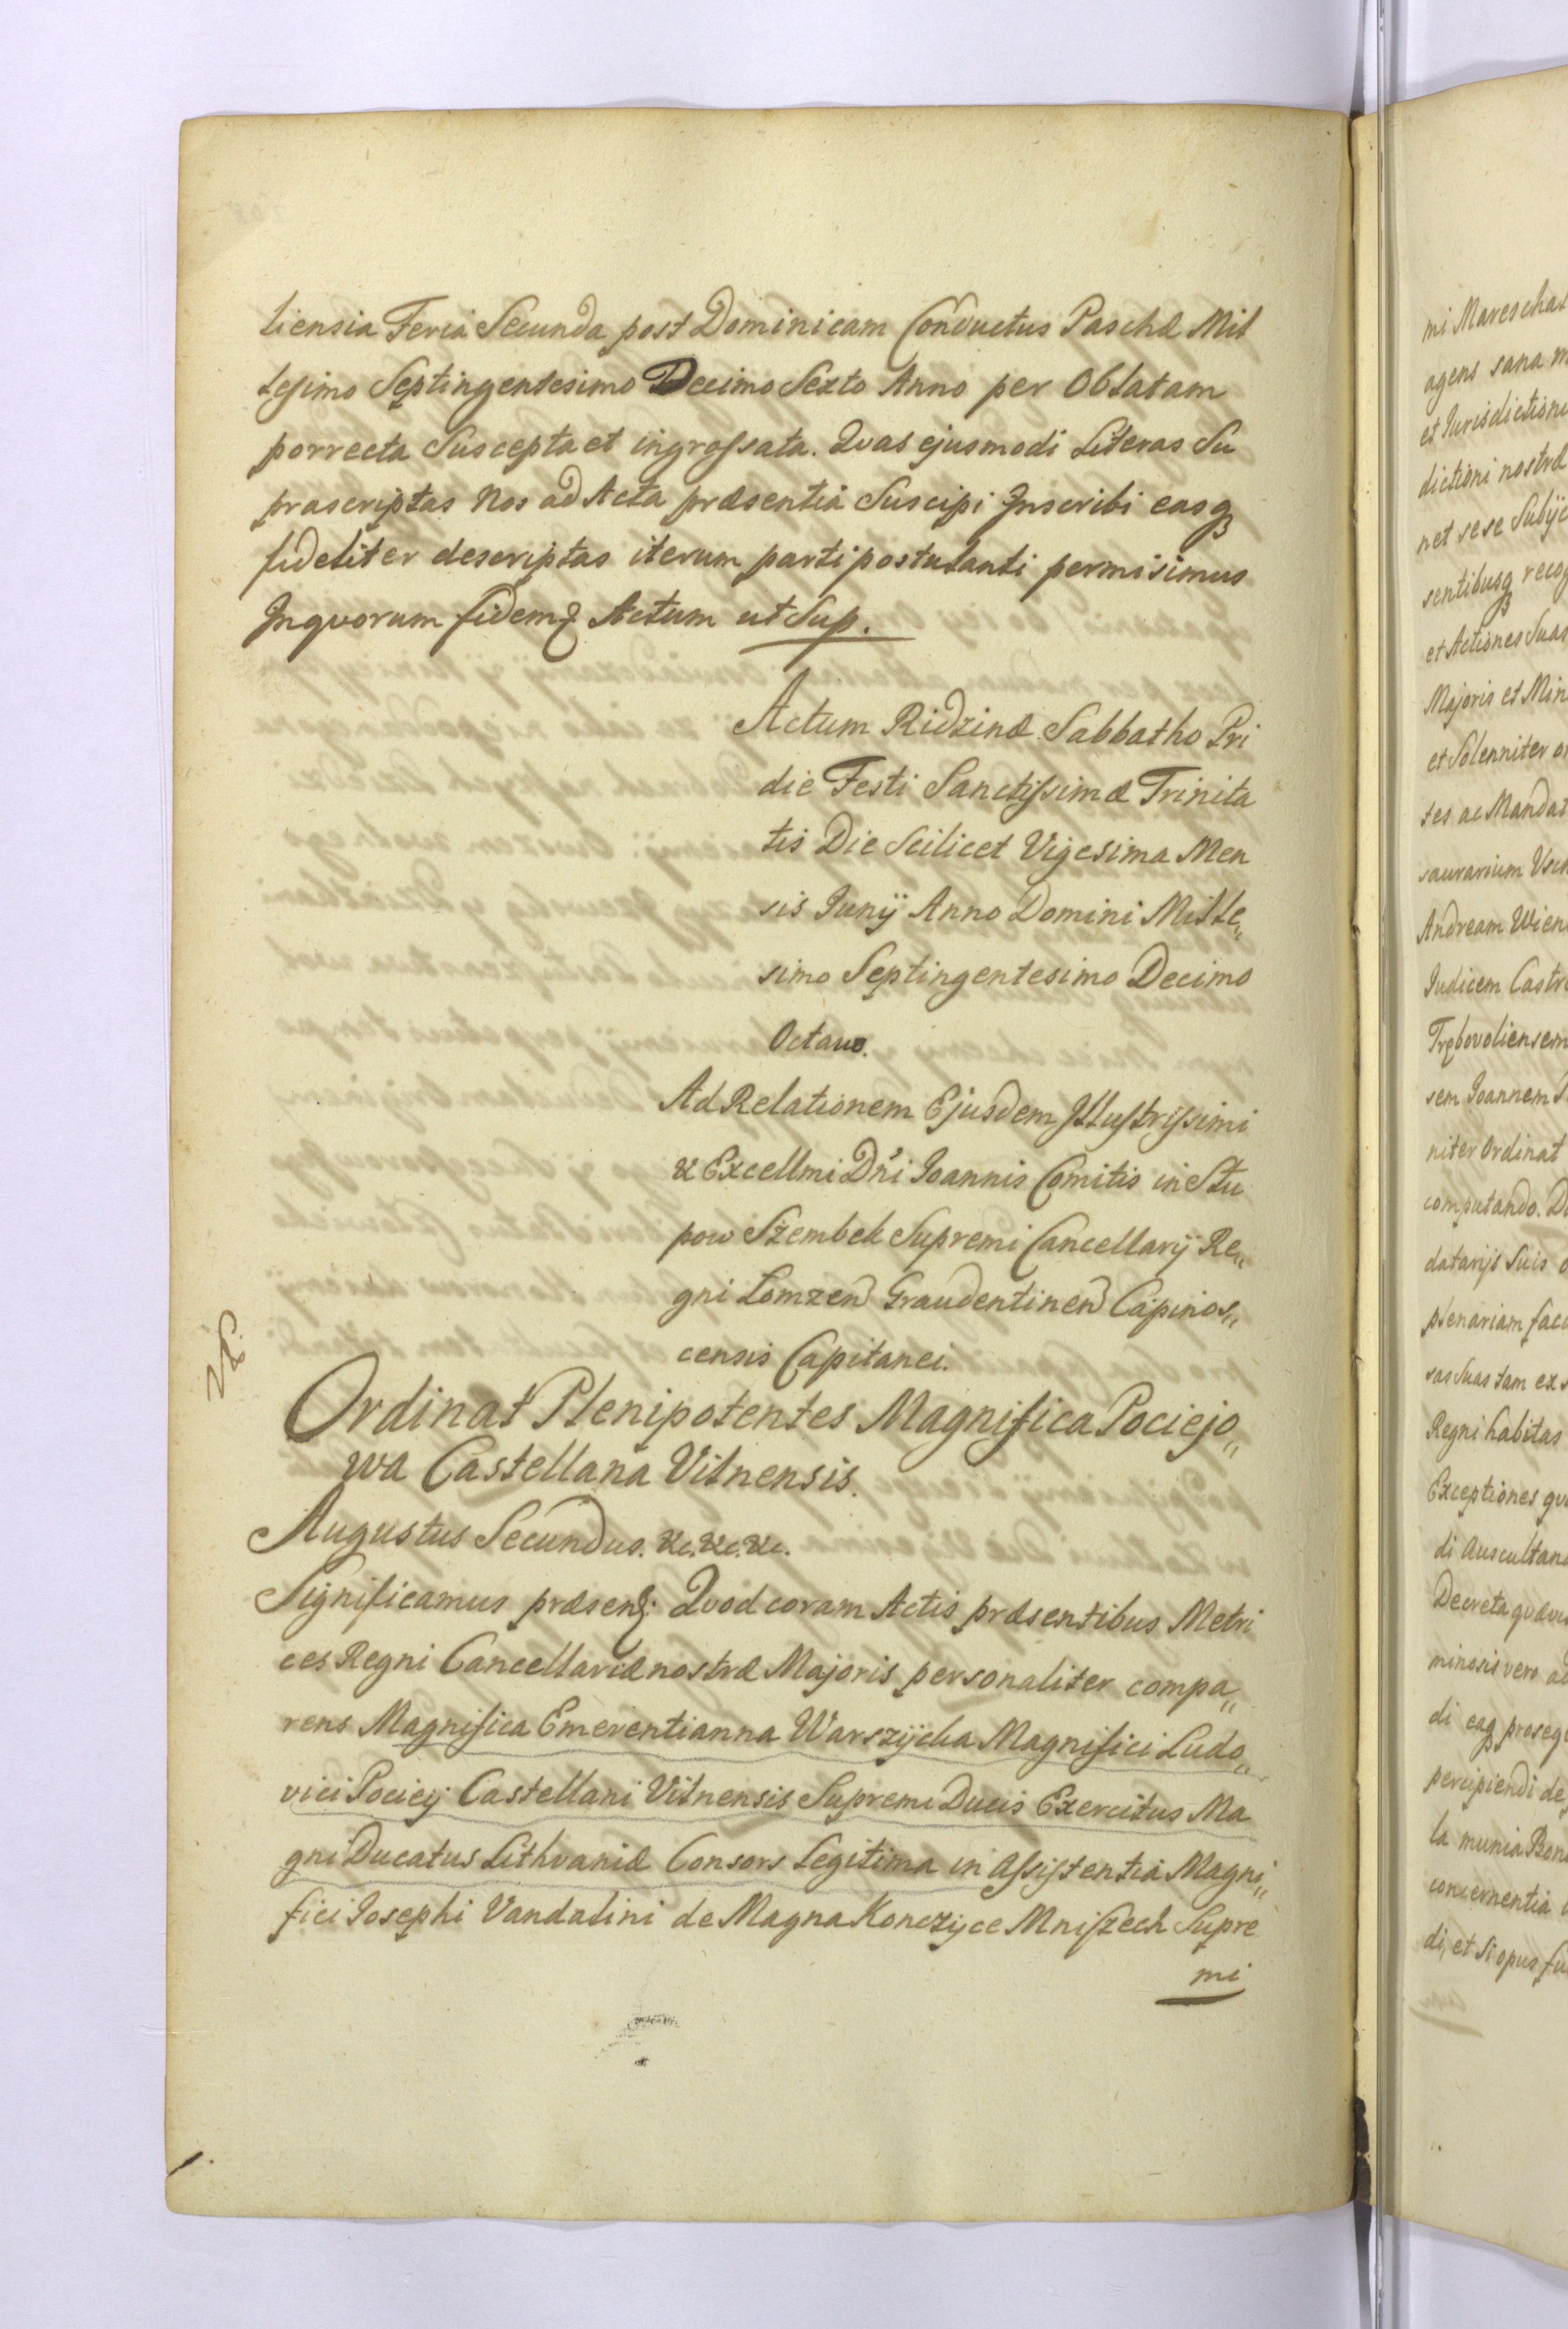 liensia Feria Secunda post Dominicam Conductus Paschæ Mil
lesimo Septingentesimo Decimo Sexto Anno per Oblatam
porrecta Suscepta et ingrossata. Quas ejusmodi Literas Su
prascriptas Nos ad Acta præsentia Suscipi Inscribi easq3
fideliter descriptas iterum parti postulanti permisimus
Inquorum fidem Actum ut Sup.
Actum Ridzinæ Sabbatho Pri
die Festi Sanctissimæ Trinita
tis Die Scilicet Vigesima Men
sis Junij Anno Domini Mille„
simo Septingentesimo Decimo
Octauo.
Ad Relationem Ejusdem Illustrissimi
& Excellmi Dñi Joannis Comitis in Słu
pow Szembek Supremi Cancellarij Re„
gni Lomzen Graudentinen Capinos„
censis Capitanei.
Ordinat Plenipotentes Magnifica Pociejo„
wa Castellana Vilnensis.
Augustus Secundus. &c. &c. &c.
Significamus præsen: Quod coram Actis præsentibus Metri
ces Regni Cancellariæ nostræ Majoris personaliter compa„
rens Magnifica Emerentianna Warszijcka Magnifici Ludo„
vici Pociej Castellani Vilnensis Supremi Ducis Exercitus Ma
gni Ducatus Lithvaniæ Consors Legitima in Assistentia Magni„
fici Josephi Vandalini de Magna Konczijce Mniszech Supre
mi
mi Mareschal
agens sana m
et Jurisdictioni
dictioni nostræ
net sese Subijc
sentibusq3 recog
et Actiones Suas
Majoris et Min
et Solenniter or
tes ac Mandat
Andream Wien
Judicem Castr
Trębovoliensem
sem Joannem
niter Ordinat
computando. D
datarijs Suis
plenariam facu
sas Suas tam ex
Regni habitas
Exceptiones qu
di Auscultan
Decreta quævis
minosis vero ad
di eaq3 prosequ
percipiendi de
la munia Bon
concernentia
di, et Si opus fu